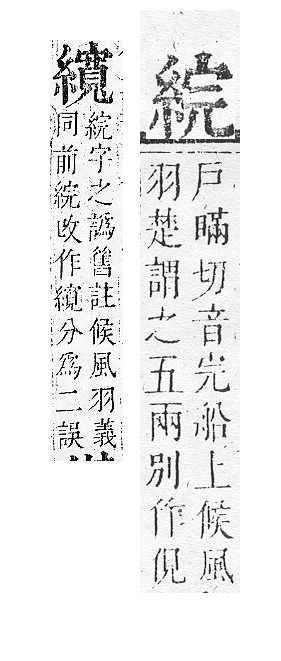 綄
戶瞞切音完船上候風
羽楚謂之五兩別作俔
綄字之譌舊註候風羽義
同前綄改作 分爲二誤